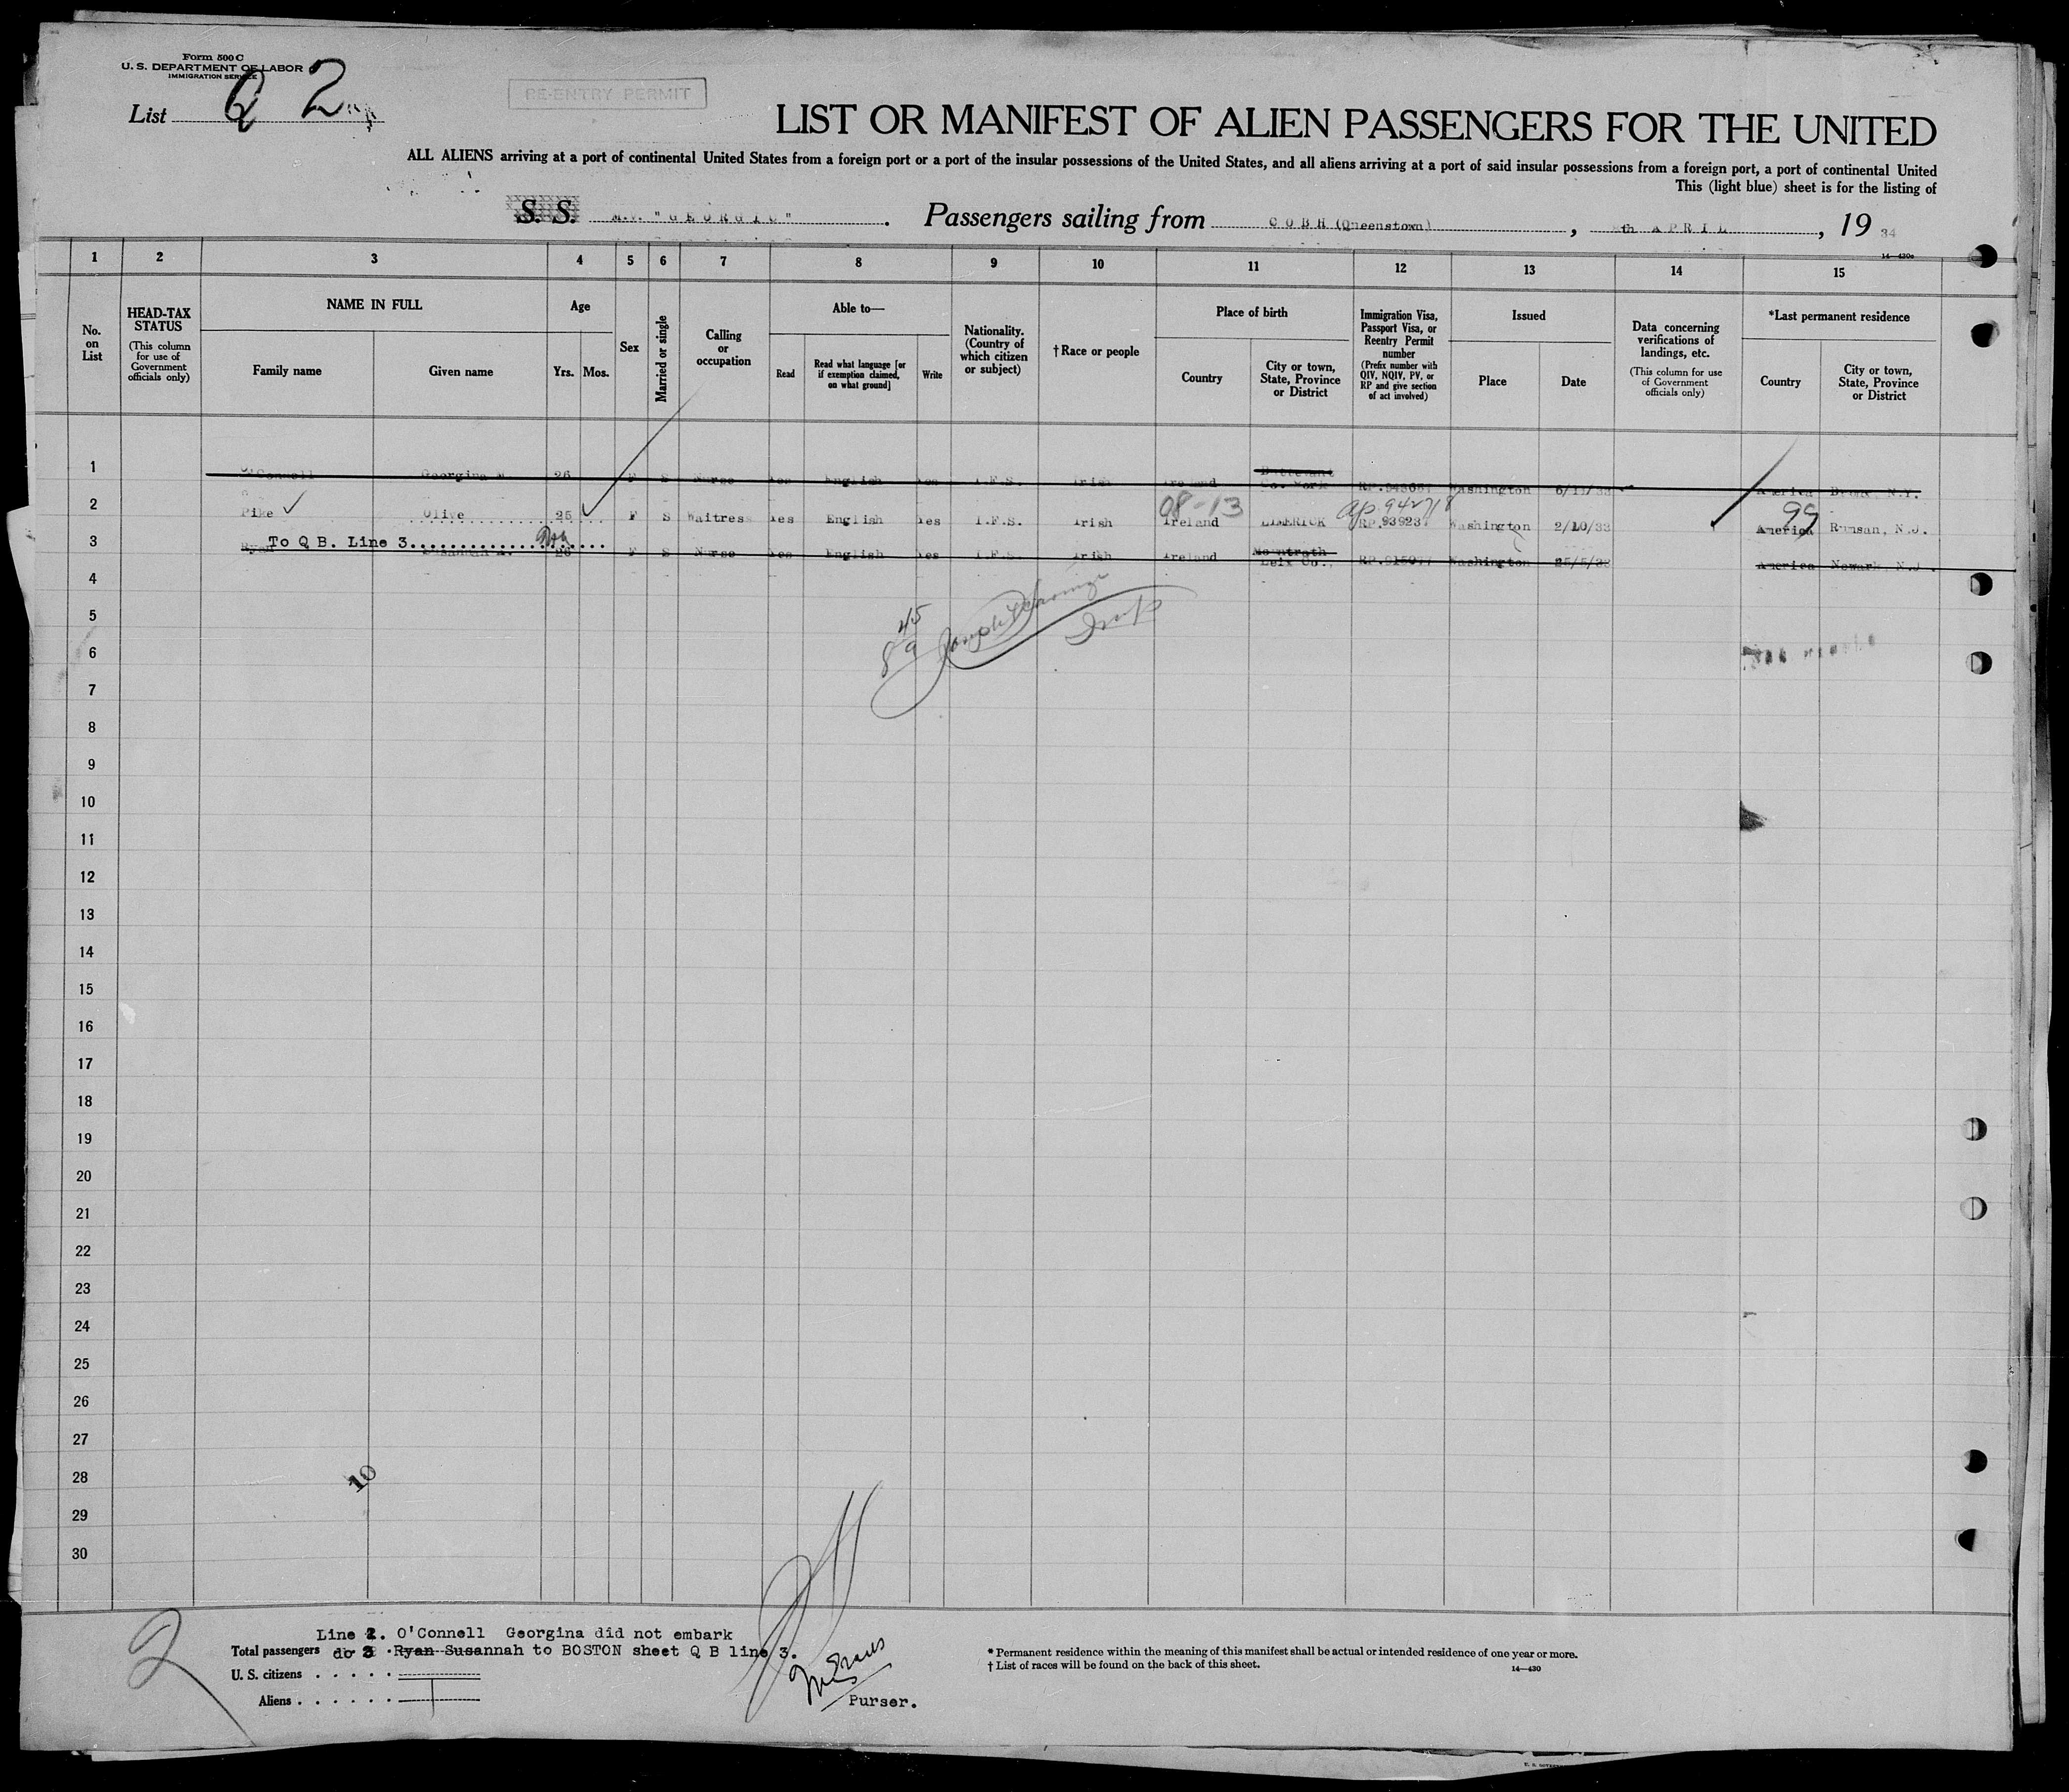 Form 500 C
U. S. DEPARTMENT OF LABOR
IMMIGRATION SERVICE
List Q 2
RE-ENTRY PERMIT
LIST OR MANIFEST OF ALIEN PASSENGERS FOR THE UNITED
ALL ALIENS arriving at a port of continental United States from a foreign port or a port of the insular possessions of the United States, and all aliens arriving at a port of said insular possessions from a foreign port, a port of continental United
This (light blue) sheet is for the listing of
S. S. M.V. "GEORGIC". Passengers sailing from COBH (Queenstown), th APRIL, 19 34
14—430c
1 2 3 4 5 6 7 8 9 10 11 12 13 14 15
No. on List
HEAD-TAX STATUS
(This column for use of Government officials only)
NAME IN FULL
Family name
Given name
Age
Yrs. Mos.
Sex
Married or single
Calling or occupation
Able to—
Read
Read what language [or if exemption claimed, on what ground]
Write
Nationality. (Country of which citizen or subject)
†Race or people
Place of birth
Country
City or town, State, Province or District
Immigration Visa, Passport Visa, or Reentry Permit number
(Prefix number with QIV, NQIV, PV, or RP and give section of act involved)
Issued
Place
Date
Data concerning verifications of landings, etc.
(This column for use of Government officials only)
*Last permanent residence
Country
City or town, State, Province or District
1 O'Connell Georgina M 26 F S Nurse Yes English Yes I.F.S. Irish Ireland Buttevant Co. Cork Washington America Bronx, N.Y.
08-13
99
2 Pike Olive 25 F S Waitress Yes English Yes I.F.S. Irish Ireland LIMERICK RP.939237 Washington 2/10/33 America Rumsan, N.J.
To Q B. Line 3
3 Ryan Susannah M. 26 F S Nurse Yes English Yes I.F.S. Irish Ireland Mountrath Leix Co., RP.915077 Washington 25/5/33 America Newark, N.J.
4
5
6
7
8
9
10
11
12
13
14
15
16
17
18
19
20
21
22
23
24
25
26
27
28
29
30
45
89
10
2
Line 1. O'Connell Georgina did not embark
Total passengers do 3 Ryan Susannah to BOSTON sheet Q B line 3.
U. S. citizens
Aliens
Purser.
* Permanent residence within the meaning of this manifest shall be actual or intended residence of one year or more.
† List of races will be found on the back of this sheet.
14—430